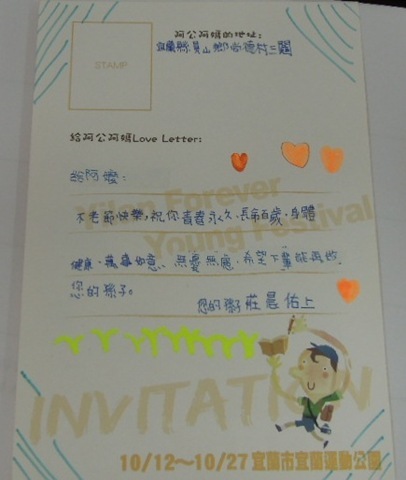 STAMP
阿公阿嬤的地址:
宜蘭縣員山鄉尚德村二鬮
給阿公阿嬤Love Letter:
給阿嬤:
Yilan Forever
Young Festival
不老節快樂,祝你青春永久、長命百歲、身體
健康、萬事如意、無憂無慮,希望下輩能再做
您的孫子。
您的孫 莊晨佑上
INVITATION
10/12~10/27 宜蘭市宜蘭運動公園